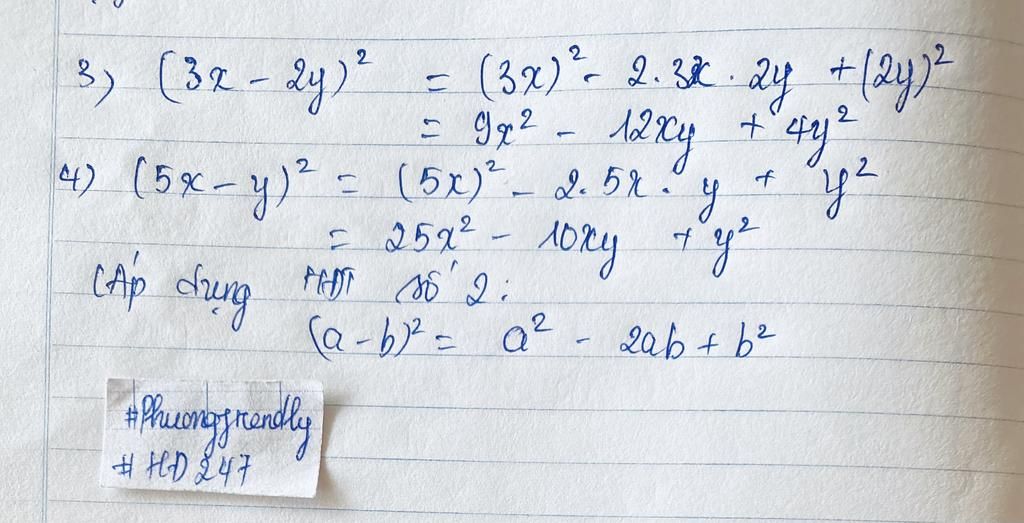 3) (3x - 2y)² = (3x)² - 2.3x.2y + (2y)²
= 9x² - 12xy + 4y²
4) (5x - y)² = (5x)² - 2.5x.y + y²
= 25x² - 10xy + y²
(Áp dụng HĐT số 2:
(a - b)² = a² - 2ab + b²
#Phuongfrendly
#HD247